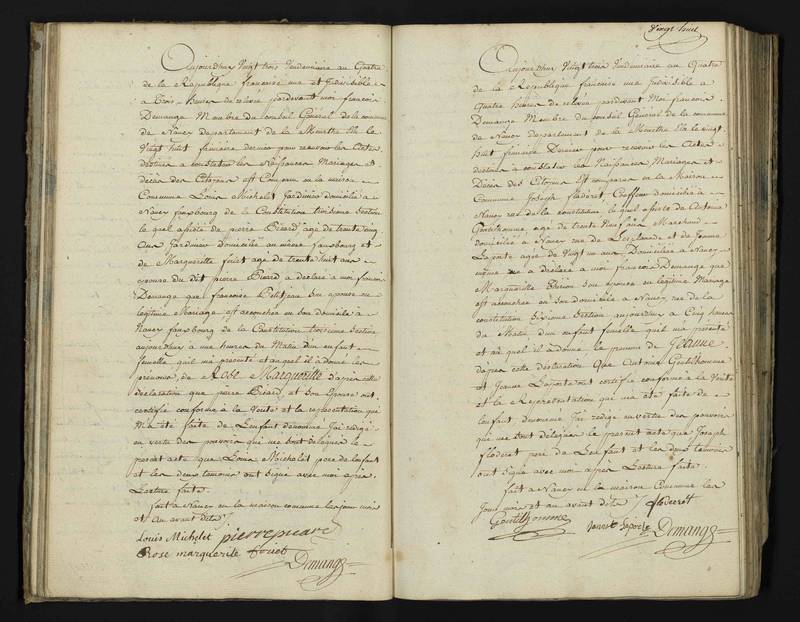 Aujourdhuy Vingt trois Vendemiaire au Quatre
de la Republique francoise une et Indivisible
a Trois heures de relevée pardevant moi francois
Demange Membre du conseil Général de la commune
de Nancy departement de la Meurthe Elu le
Vingt huit frimaire dernier pour recevoir les Actes
destinés a constater les Naissances Mariages et
décès des Citoyens est Comparu en la maison
Commune Louis Michelet Jardinier domicilié a
Nancy fauxbourg de la Constitution troisieme Section
le quel assisté de pierre Picard, age de trente cinq
ans Jardinier domicilié au même fauxbourg et
de Margueritte foriet age de trente huit ans
epouse du dit pierre Picard a declaré a moi francois
Demange que francoise Petitjean son epouse en
legitime Mariage est accouchée en son domicile a
Nancy fauxbourg de la Constitution troisieme Section
aujourdhuy a une heures du Matin d'un enfant
femelle quil ma presenté et auquel il a donné les
prénoms de Rose Margueritte d'apres cette
declaration que pierre Picard et son Epouse ont
certifié conforme à la Verité et la representation qui
Ma eté faite de L'enfant denommé Jai redigé
en vertu des pouvoirs qui me sont delegués le
present acte que Louis Michelet pere de lenfant
et les deux temoins ont Signé avec moi après
Lecture faite.
fait a Nancy en la maison commune les jour mois
et an avant dits
Louis Michelet pierre picard
Rose marguerite foriet
Demange
Vingt huit
Aujourdhuy Vingt trois Vendemiaire au Quatre
de la Republique francoise une Indivisible a
Quatre heures de relevée pardevant Moi francois
Demange Membre du conseil Général de la commune
de Nancy departement de la Meurthe Elu le vingt
huit frimaire Dernier pour recevoir les Actes
destinés a constater les Naissances Mariages et
Décès des Citoyens Est comparu en la Maison
Commune Joseph floderet Coeffeur domicilié a
Nancy rue de la constitution le quel assisté de Antoine
Gentilhomme age de trente Marchand
domicilié a Nancy rue de et de Jeanne
Laporte age de Vingt un ans Domiciliée a Nancy
même rue a déclaré a moi francois Demange que
Margueritte son epouse en legitime Mariage
est accouchée en son domicile a Nancy rue de la
constitution Sixieme Section aujourdhuy a Cinq heures
du Matin d'un enfant femelle quil ma presenté
et au quel il a donné le prenom de Jeanne
d'apres cette declaration Que Antoine Gentilhomme
et Jeanne Laporte ont certifié conforme à la Verité
et la Representation qui ma eté faite de
lenfant denommé Jai redigé en vertu des pouvoirs
qui me sont delegués le present acte que Joseph
floderet pere de Lenfant et les deux temoins
ont Signé avec moi apres Lecture faite.
fait a Nancy en la maison Commune les
Jour mois et an avant dits floderett
Gentilhomme Jeanne laporte Demange